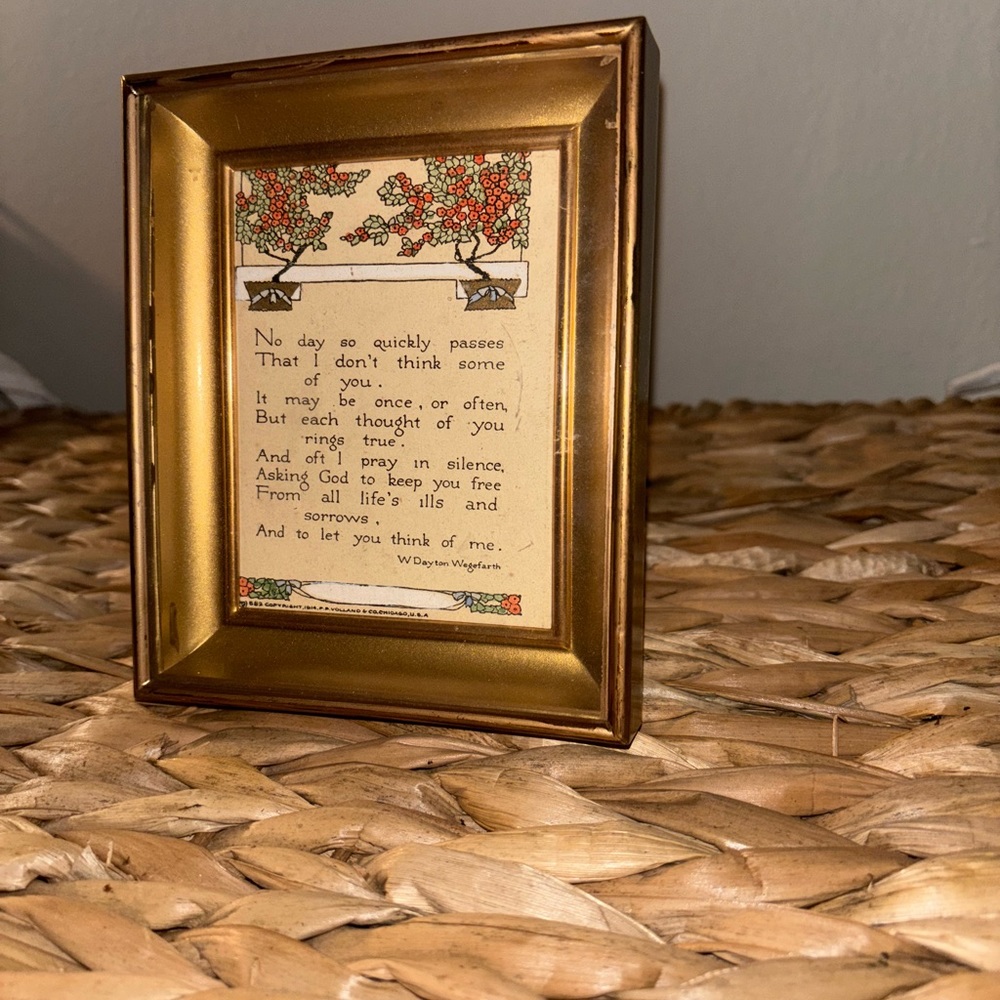 No day so quickly passes
That I don't think some
of you.
It may be once, or often,
But each thought of you
rings true.
And oft I pray in silence,
Asking God to keep you free
From all life's ills and
sorrows,
And to let you think of me.
W Dayton Wegefarth
COPYRIGHT, 1914, P.F. VOLLAND & CO. CHICAGO, U.S.A